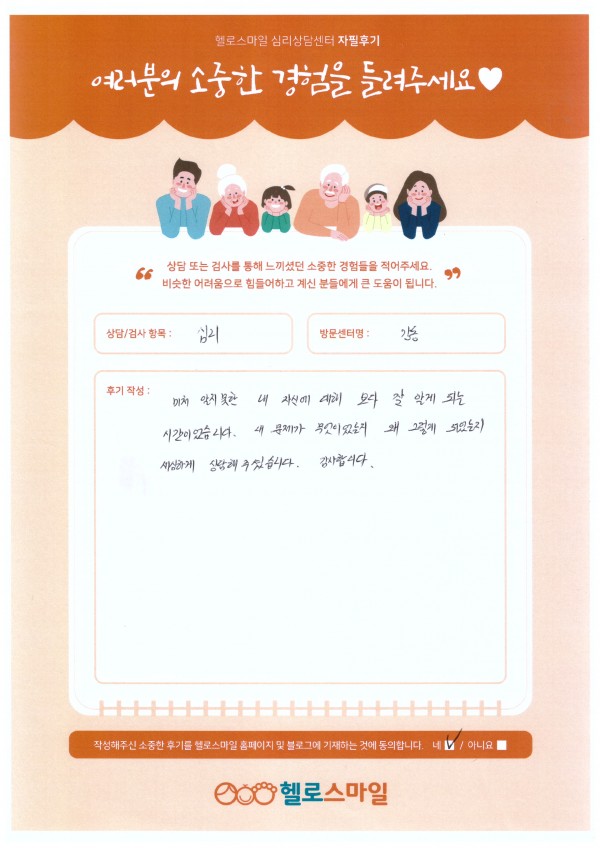 헬로스마일 심리상담센터 자필후기
여러분의 소중한 경험을 들려주세요♥
“ 상담 또는 검사를 통해 느끼셨던 소중한 경험들을 적어주세요.
비슷한 어려움으로 힘들어하고 계신 분들에게 큰 도움이 됩니다. ”
상담/검사 항목 : 심리
방문센터명 : 강동
후기 작성 : 미처 알지 못한 내 자신에 대해 보다 잘 알게 되는
시간이었습니다. 내 문제가 무엇이었는지 왜 그렇게 되었는지
세심하게 상담해 주셨습니다. 감사합니다.
작성해주신 소중한 후기를 헬로스마일 홈페이지 및 블로그에 기재하는 것에 동의합니다. 네 ☑ / 아니요 ☐
헬로스마일